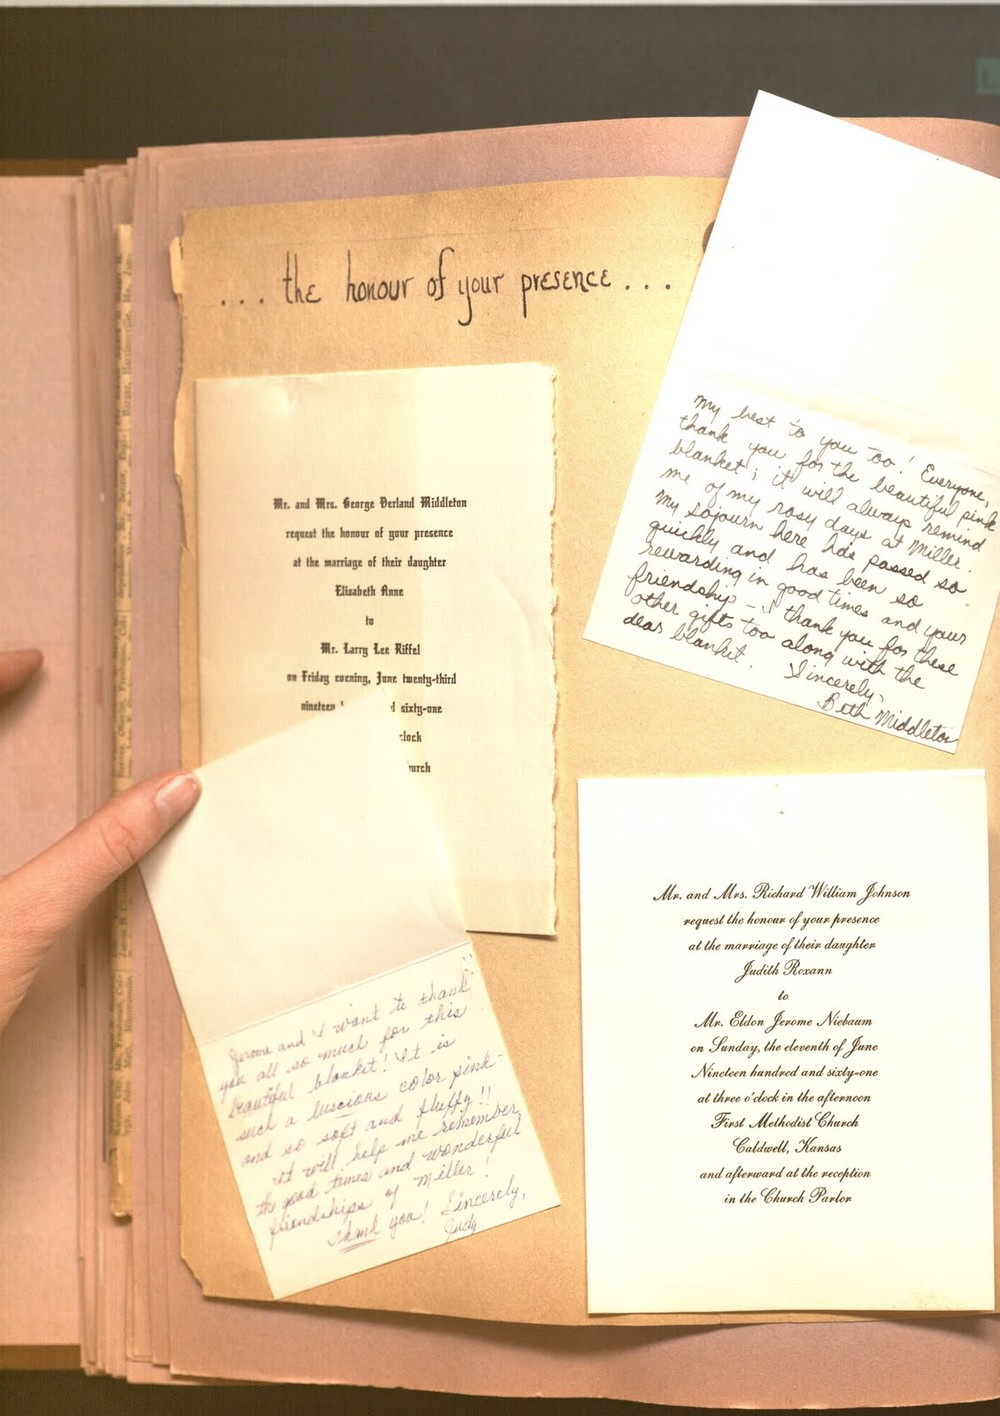 ... the honour of your presence ...
Mr. and Mrs. George Derland Middleton
request the honour of your presence
at the marriage of their daughter
Elizabeth Anne
to
Mr. Larry Lee Riffel
on Friday evening, June twenty-third
nineteen d sixty-one
clock
hurch
My best to you too! Everyone,
thank you for the beautiful pink
blanket; it will always remind
me of my rosy days at Miller.
My sojourn here has passed so
quickly and has been so
rewarding in good times and your
friendship - I thank you for these
other gifts too along with the
dear blanket.
Sincerely,
Beth Middleton
Jerome and I want to thank
you all so much for this
beautiful blanket! It is
such a luscious color pink-
and so soft and fluffy!!
It will help me remember
the good times and wonderful
friendships of Miller!
Thank you! Sincerely,
Judy
Mr. and Mrs. Richard William Johnson
request the honour of your presence
at the marriage of their daughter
Judith Roxann
to
Mr. Eldon Jerome Niebaum
on Sunday, the eleventh of June
Nineteen hundred and sixty-one
at three o'clock in the afternoon
First Methodist Church
Caldwell, Kansas
and afterward at the reception
in the Church Parlor